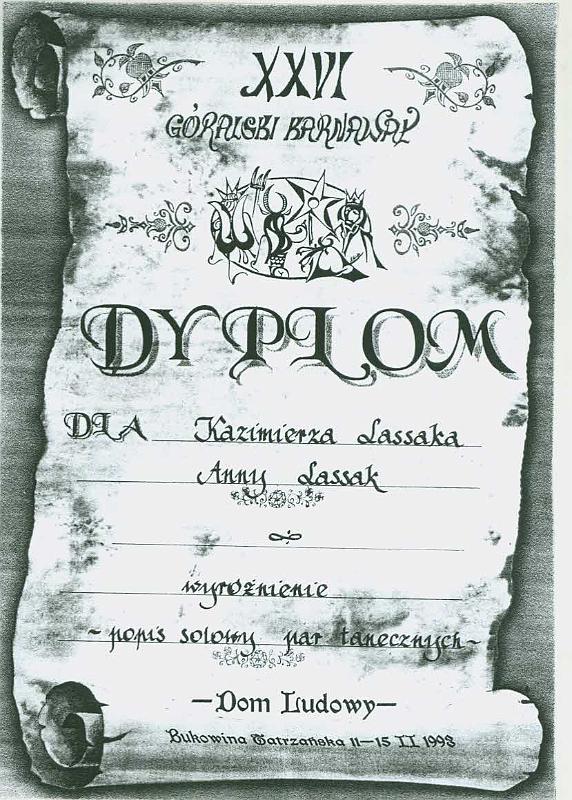 XXVI
GÓRALSKI KARNAWAŁ
DYPLOM
DLA Kazimierza Lassaka
Anny Lassak
wyróżnienie
~ popis solowy par tanecznych ~
— Dom Ludowy —
Bukowina Tatrzańska 11—15 II 1998